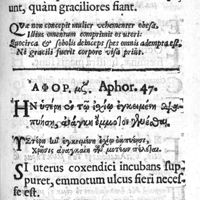 unt, quàm graciliores fiant.
Quæ non concepit mulier vehementer obesa,
Illius omentum comprimit os uteri:
Quocirca & sobolis deinceps spes omnis adempta est,
Ni gracili fuerit corpore visa prius.
ΑΦΟΡ. μζ. Aphor. 47.
Ἢν ὑστέρη ἐν τῷ ἰσχίῳ ἐγκειμένη
ἀνάγκη ἔμμοτον γενέσθαι.
ἐγκειμένη
SI uterus coxendici incubans sup-
puret, emmotum ulcus fieri necef-
se est.